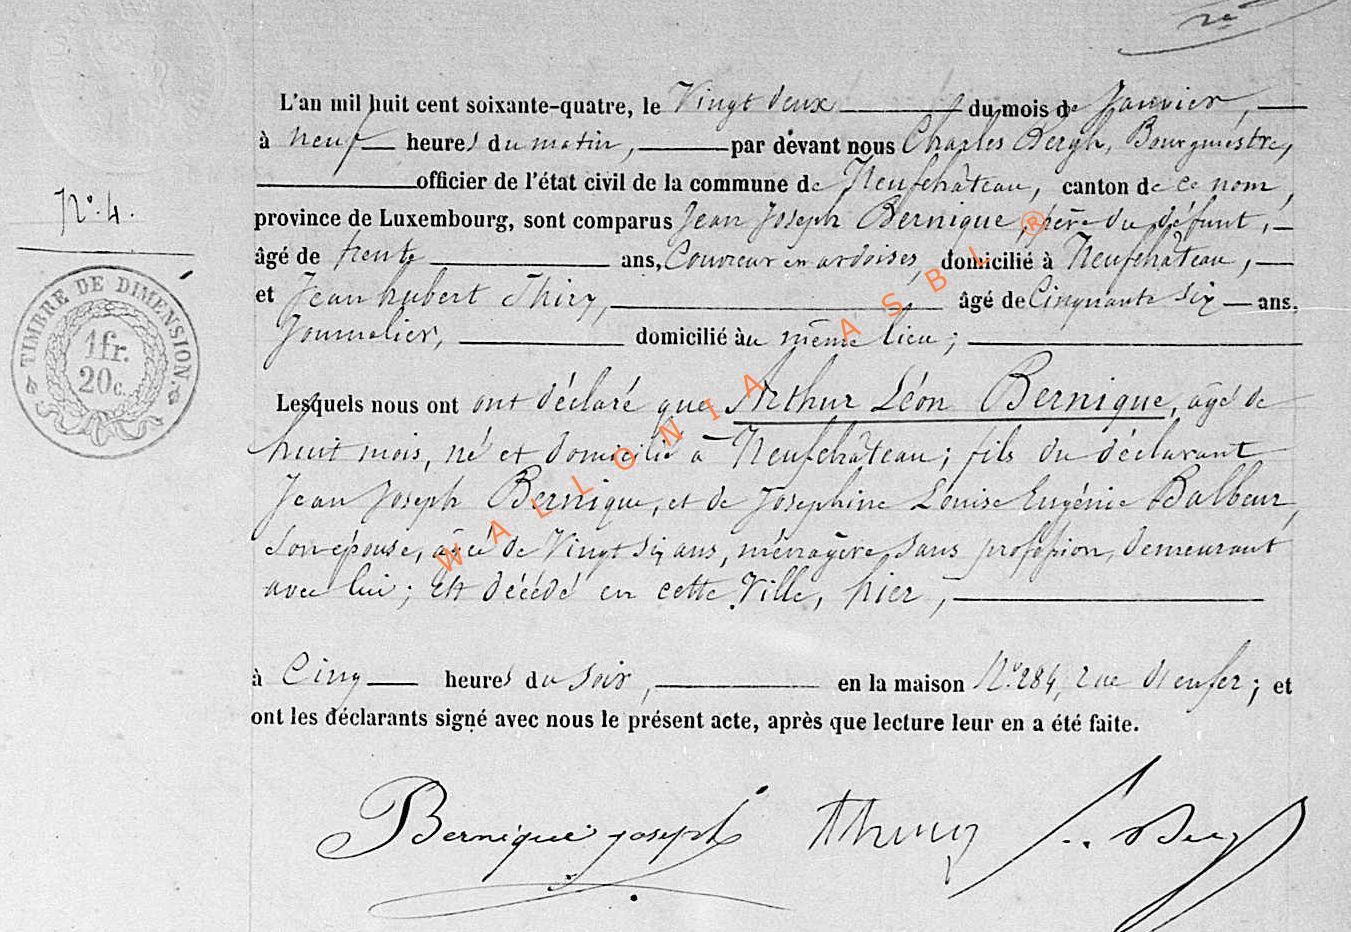 2e
L'an mil huit cent soixante-quatre, le Vingt deux du mois de Janvier,
à neuf heures du matin, par devant nous Charles Bergh, Bourgmestre,
officier de l'état civil de la commune de Neufchâteau, canton de ce nom,
N°. 4.
province de Luxembourg, sont comparus Jean Joseph Bernique, père du défunt,
âgé de trente ans, Couvreur en ardoises, domicilié à Neufchâteau,
et Jean hubert Thiry, âgé de Cinquante six ans,
Journalier, domicilié au même lieu;
TIMBRE DE DIMENSION.
1 fr.
20 c.
Lesquels nous ont ont déclaré que Arthur Léon Bernique, âgé de
huit mois, né et domicilié à Neufchâteau; fils du déclarant
Jean Joseph Bernique, et de Joséphine Louise Eugénie Balbeur,
son épouse, agée de Vingt six ans, ménagère, sans profession, demeurant
avec lui; Est décédé en cette Ville, hier,
à Cinq heures du soir, en la maison N° 284, rue d'enfer; et
ont les déclarants signé avec nous le présent acte, après que lecture leur en a été faite.
Bernique joseph Thiry
WALLONIA ASBL ®